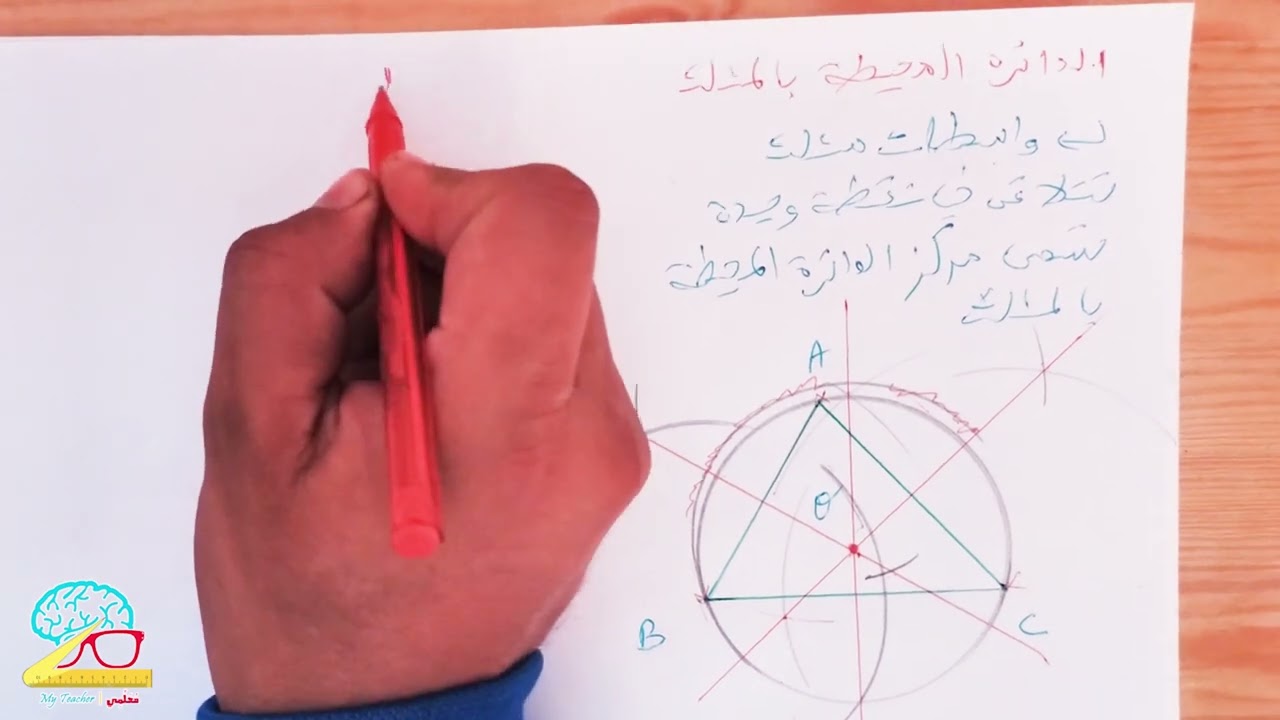 الدائرة المحيطة بالمثلث
واسطات مثلث
تتلاقى في نقطة وحيدة
تسمى مركز الدائرة المحيطة
بالمثلث
A
O
B
C
My Teacher | معلمي